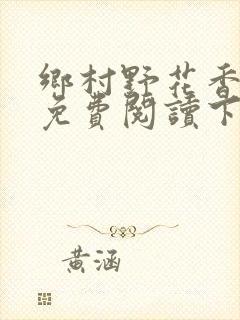 鄉村野花香
免費閱讀下
黃涵